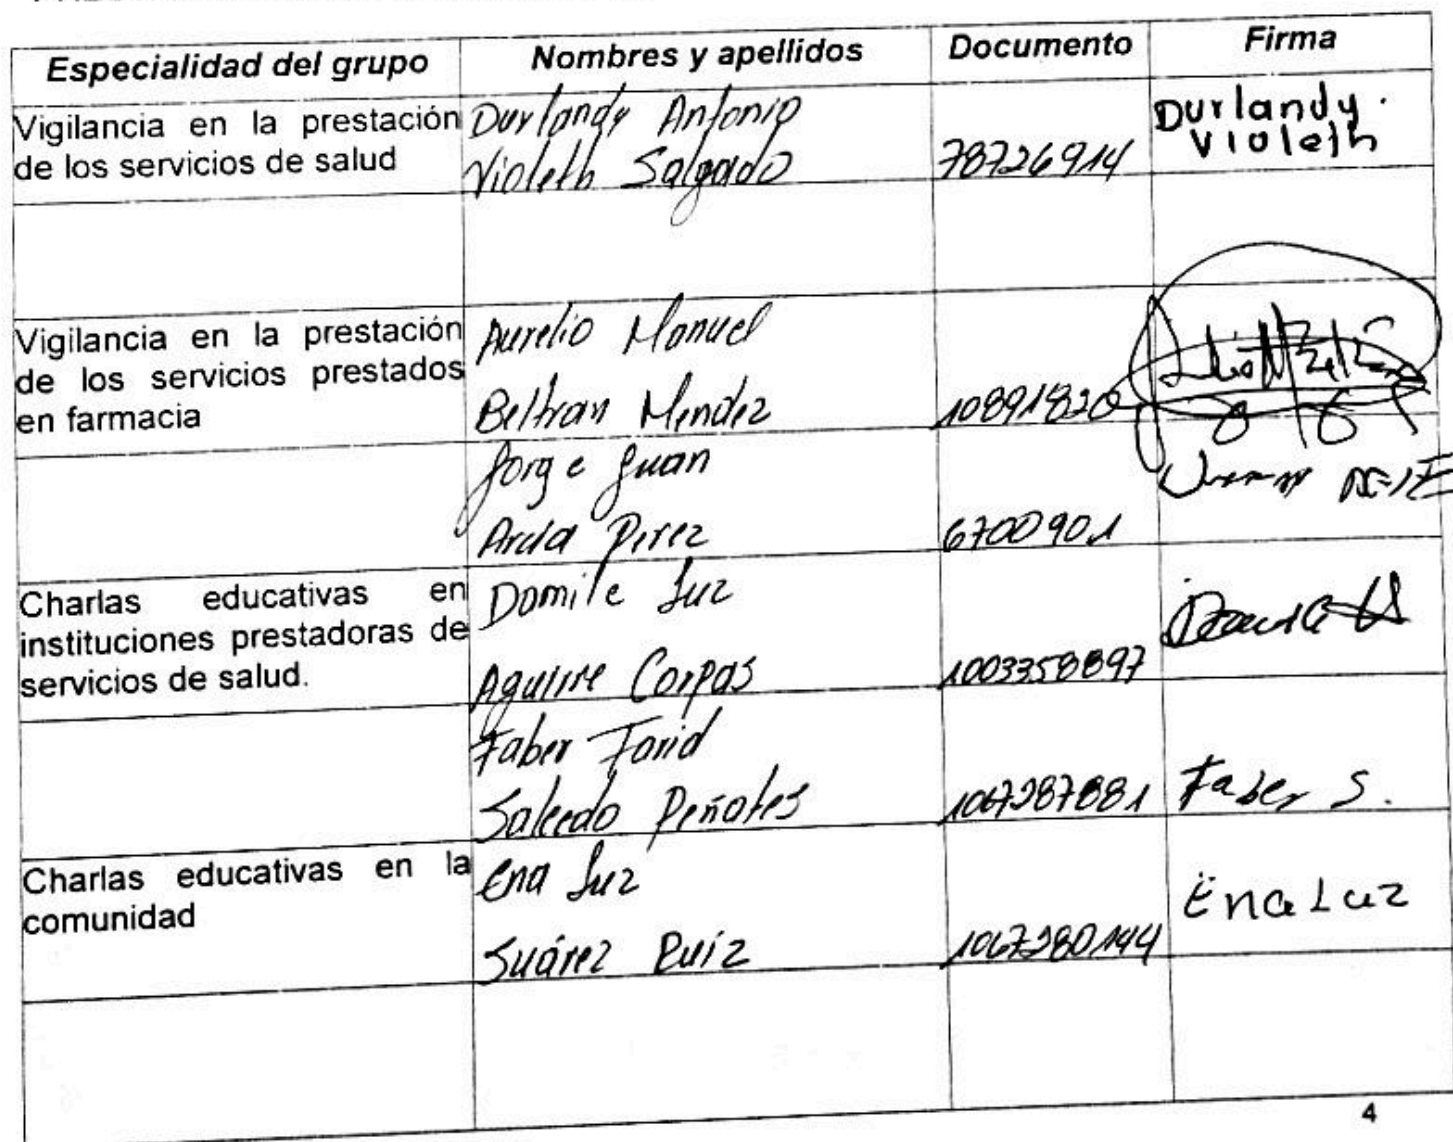 Especialidad del grupo Nombres y apellidos Documento Firma
Vigilancia en la prestación
de los servicios de salud
Durlandy Antonio
Violeth Salgado
78726914
Durlandy.
Violeth
Vigilancia en la prestación
de los servicios prestados
en farmacia
Aurelio Manuel
Beltran Mendez
10891820
Jorge Juan
Perez
6700901
Charlas educativas en
instituciones prestadoras de
servicios de salud.
Domile Luz
Aguirre Corpas
1003358897
Faber Farid
Salcedo Peñates
1067287881
Faber S.
Charlas educativas en la
comunidad
Ena Luz
Suárez Ruíz
1067280144
Ena Luz
4